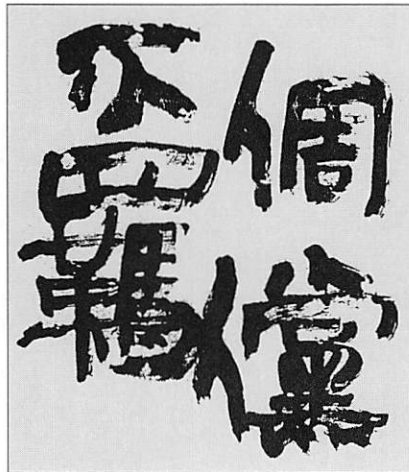 倜儻
不羈